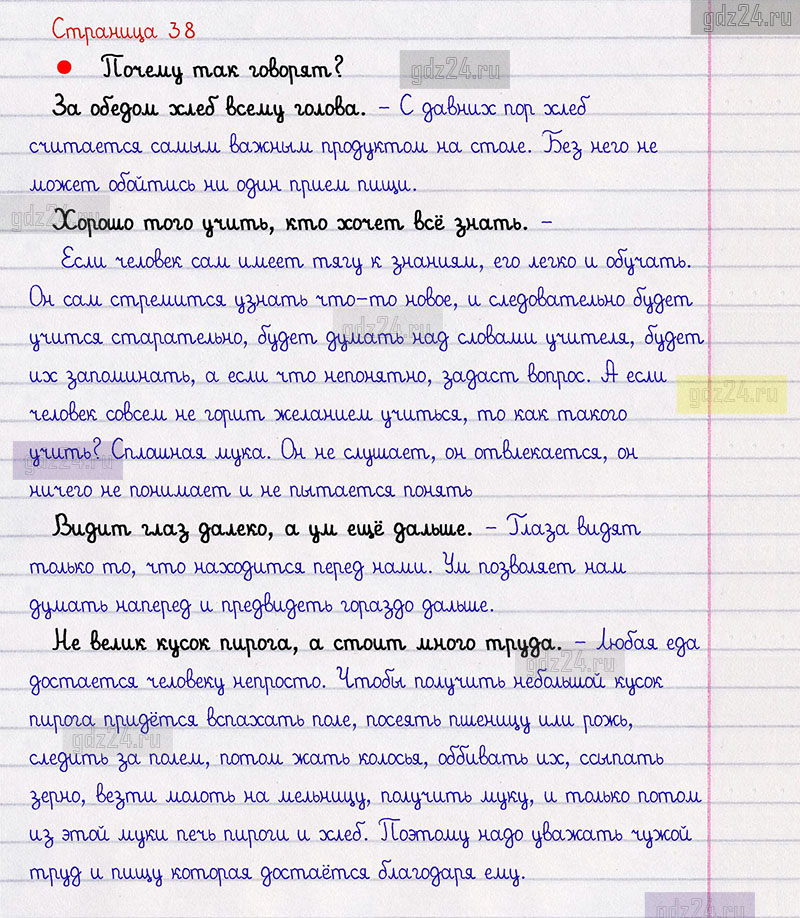 gdz24.ru
Страница 38
• Почему так говорят?
gdz24.ru
За обедом хлеб всему голова. – С давних пор хлеб
считается самым важным продуктом на столе. Без него не
может обойтись ни один прием пищи.
gdz24.ru
Хорошо того учить, кто хочет всё знать. –
Если человек сам имеет тягу к знаниям, его легко и обучать.
Он сам стремится узнать что-то новое, и следовательно будет
gdz24.ru
учится старательно, будет думать над словами учителя, будет
их запоминать, а если что непонятно, задаст вопрос. А если
gdz24.ru
человек совсем не горит желанием учиться, то как такого
учить? Сплошная мука. Он не слушает, он отвлекается, он
gdz24.ru
ничего не понимает и не пытается понять
Видит глаз далеко, а ум ещё дальше. – Глаза видят
только то, что находится перед нами. Ум позволяет нам
думать наперед и предвидеть гораздо дальше.
Не велик кусок пирога, а стоит много труда. – Любая еда
gdz24.ru
достается человеку непросто. Чтобы получить небольшой кусок
пирога придётся вспахать поле, посеять пшеницу или рожь,
gdz24.ru
следить за полем, потом жать колосья, оббивать их, ссыпать
зерно, везти молоть на мельницу, получить муку, и только потом
из этой муки печь пироги и хлеб. Поэтому надо уважать чужой
труд и пищу которая достаётся благодаря ему.
gdz24.ru